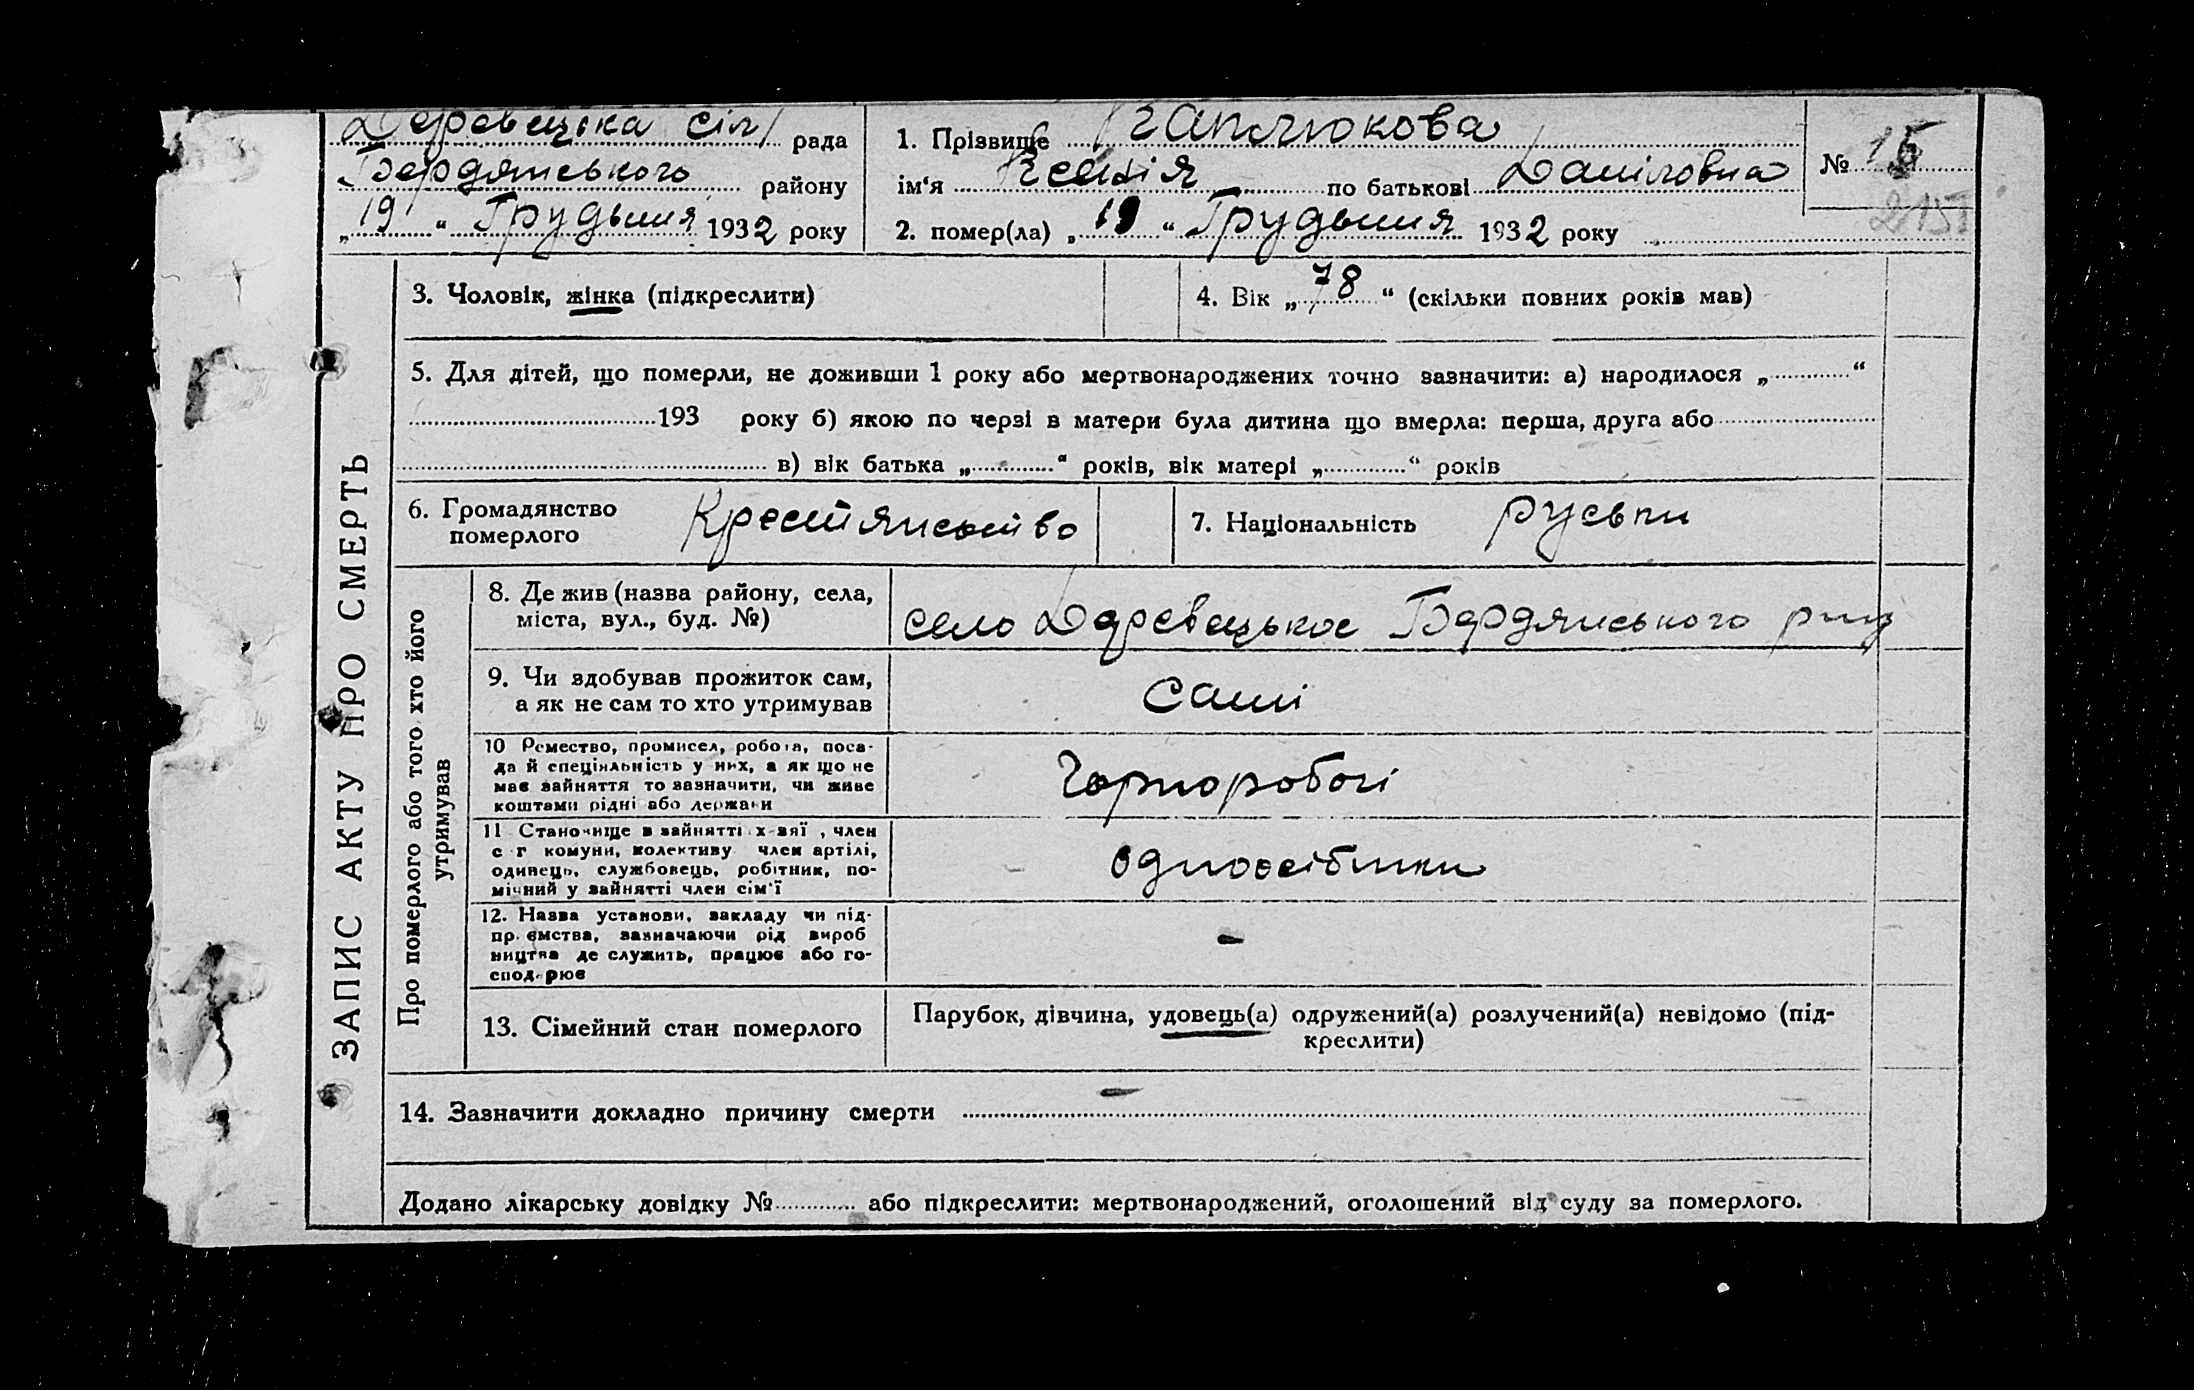 Деревецька сіл/ рада
Бердянського району
„19“ Грудьння 1932 року
1. Прізвище Гаплюкова
ім‘я Ксенія по батькові Даніловна
№ 15
2151
2. помер(ла) „19“ Грудьння 1932 року
ЗАПИС АКТУ ПРО СМЕРТЬ
3. Чоловік, жінка (підкреслити)
4. Вік „78“ (скільки повних років мав)
5. Для дітей, що померли, не доживши 1 року або мертвонароджених точно зазначити: а) народилося „ “
193 року б) якою по черзі в матери була дитина що вмерла: перша, друга або
в) вік батька „ “ років, вік матері „ “ років
6. Громадянство
померлого
Крестянство
7. Національність
руськи
Про померлого або того хто його
утримував
8. Де жив (назва району, села,
міста, вул., буд. №)
село Деревецькое Бердянського
9. Чи здобував прожиток сам,
а як не сам то хто утримував
Самі
10 Ремество, промисел, робота, поса-
да й спеціяльність у них, а як що не
має зайняття то зазначити, чи живе
коштами рідні або держави
Чорноробочі
11 Становище в зайнятті х-зяї , член
с г комуни, колективу член артілі,
одинець, службовець, робітник, по-
мічний у зайнятті член сім‘ї
одноосібники
12. Назва установи, закладу чи під-
приємства, зазначаючи рід вироб
ництва де служить, працює або го-
сподарює
-
13. Сімейний стан померлого
Парубок, дівчина, удовець(а) одружений(а) розлучений(а) невідомо (під-
креслити)
14. Зазначити докладно причину смерти -
Додано лікарську довідку № або підкреслити: мертвонароджений, оголошений від суду за померлого.